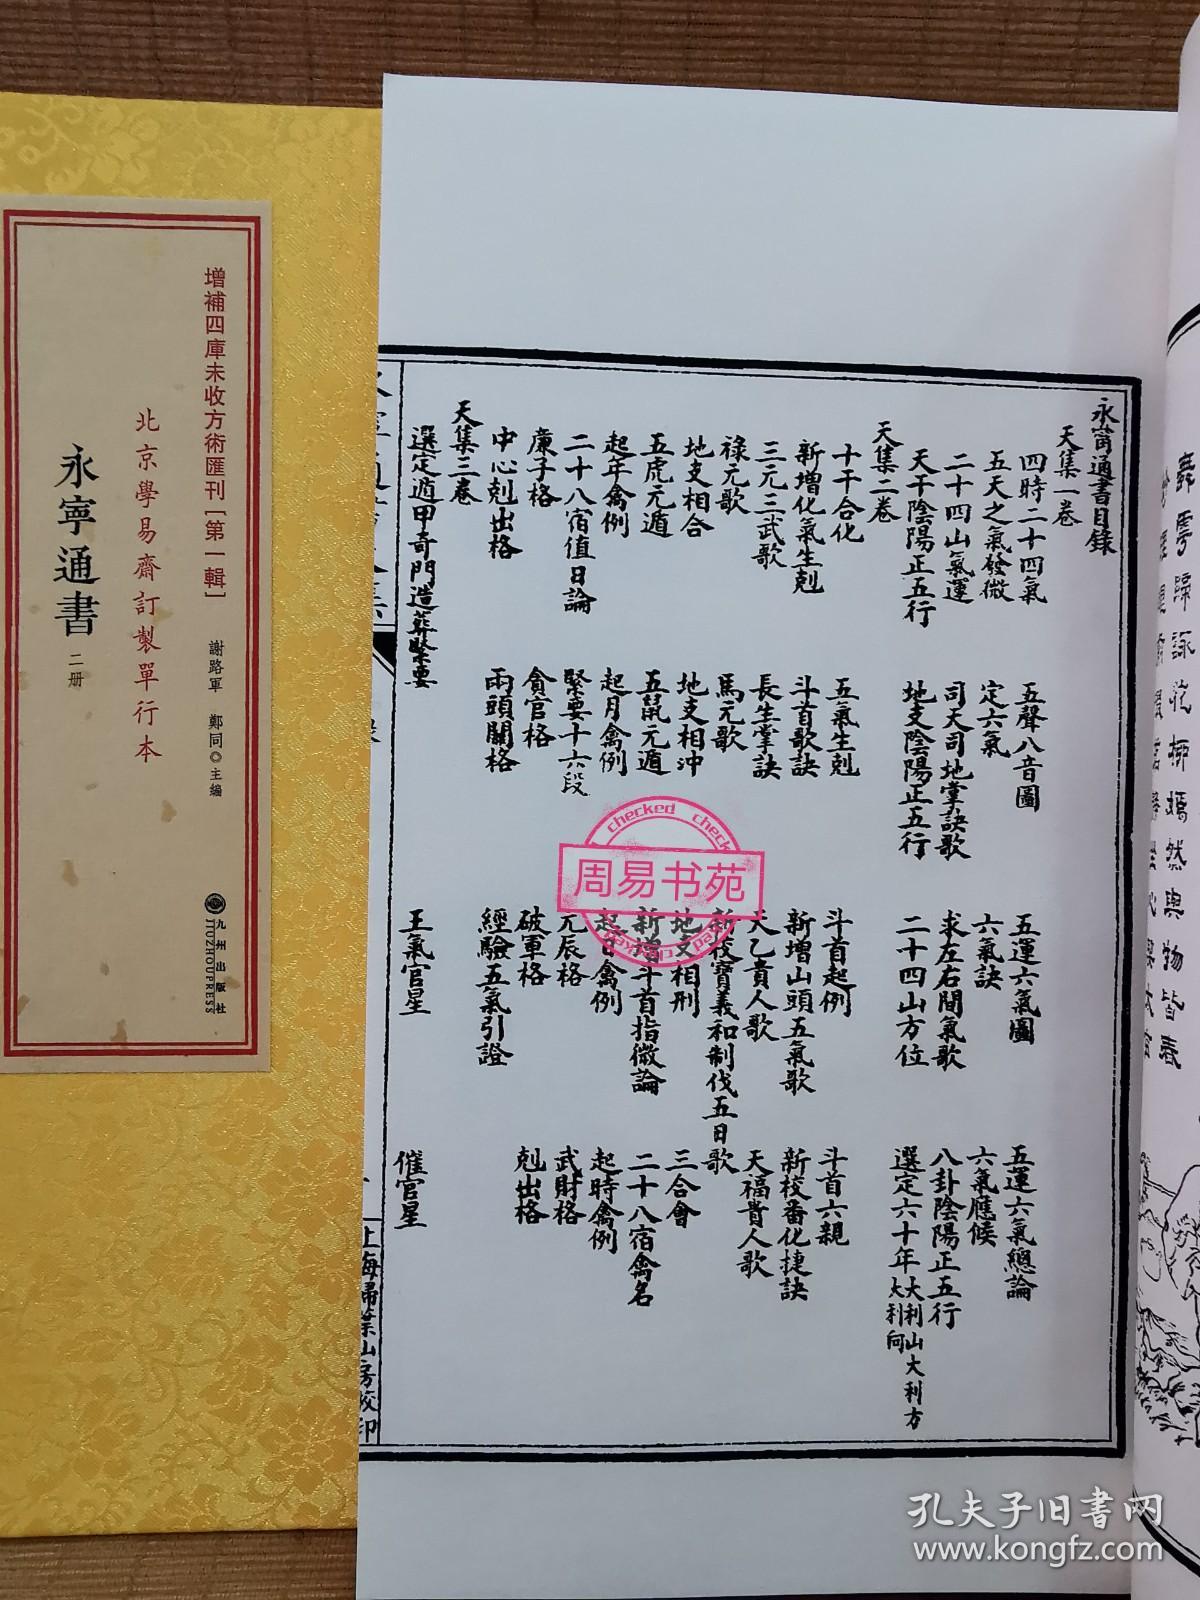 增補四庫未收方術匯刊［第一輯］
謝路軍　鄭同◎主編
北京學易齋訂製單行本
永寧通書
二册
九州出版社
JIUZHOUPRESS
永甯通書目錄
天集一卷
四時二十四氣　五聲八音圖　五運六氣圖　五運六氣總論
五天之氣發微　定六氣　六氣訣　六氣應候
二十四山氣運　司天司地掌訣歌　求左右間氣歌　八卦陰陽正五行
天干陰陽正五行　地支陰陽正五行　二十四山方位　選定六十年大利山大利方大利向
天集二卷
十干合化　五氣生剋　斗首起例　斗首六親
新增化氣生剋　斗首歌訣　新增山頭五氣歌　新校番化捷訣
三元三武歌　長生掌訣　天乙貴人歌　天福貴人歌
祿元歌　馬元歌　新校寶義和制伐五日歌
地支相合　地支相沖　地支相刑　三合會
五虎元遁　五鼠元遁　新增斗首指微論　二十八宿禽名
起年禽例　起月禽例　起日禽例　起時禽例
二十八宿值日論　緊要十六段　元辰格　武財格
廉子格　貪官格　破軍格　剋出格
中心剋出格　兩頭關格　經驗五氣引證
天集三卷
選定遁甲奇門造葬緊要　王氣官星　催官星
上海掃葉山房校印
然與物皆春
checked
周易书苑
孔夫子旧书网
www.kongfz.com